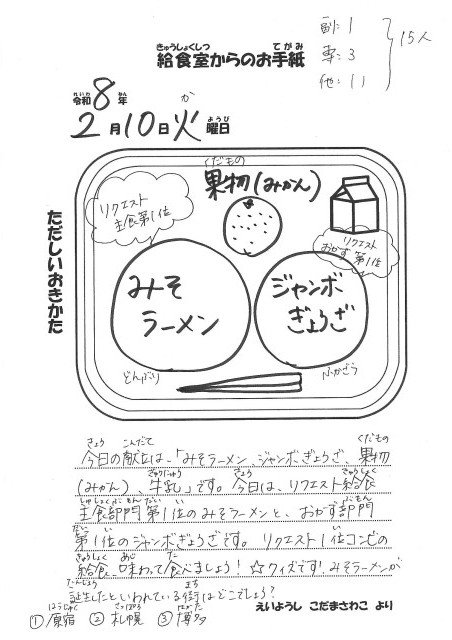 きゅうしょくしつ　てがみ
給食室からのお手紙
副:1
専:3
他:11
15人
れいわ　ねん
令和8年
か　ようび
2月10日火曜日
ただしいおきかた
リクエスト
主食第1位
くだもの
果物(みかん)
リクエスト
おかず第1位
みそ
ラーメン
ジャンボ
ぎょうざ
どんぶり
ふかざら
きょう　こんだて　くだもの
今日の献立は、「みそラーメン、ジャンボぎょうざ、果物
ぎゅうにゅう　きょう　きゅうしょく
(みかん)、牛乳」です。今日は、リクエスト給食
しゅしょくぶもんだい　い　ぶもん
主食部門第1位のみそラーメンと、おかず部門
だい　い　い
第1位のジャンボぎょうざです。リクエスト1位コンビの
きゅうしょく　あじ　た
給食、味わって食べましょう！☆クイズです！みそラーメンが
たんじょう　まち
誕生したといわれている街はどこでしょう？
えいようし　こだまさわこ　より
はらじゅく　さっぽろ　はかた
①原宿　②札幌　③博多